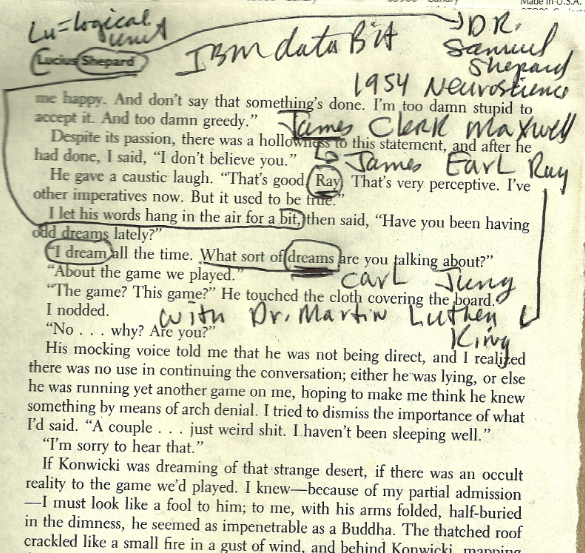 Made in U.S.A.
Lu = logical unit
IBM data Bit
DR. Samuel Shepard
1954 Neuroscience
Lucius Shepard
me happy. And don't say that something's done. I'm too damn stupid to
accept it. And too damn greedy."
James Clerk Maxwell
Despite its passion, there was a hollowness to this statement, and after he
had done, I said, "I don't believe you."
James Earl Ray
He gave a caustic laugh. "That's good, Ray. That's very perceptive. I've
other imperatives now. But it used to be true."
I let his words hang in the air for a bit, then said, "Have you been having
odd dreams lately?"
"I dream all the time. What sort of dreams are you talking about?"
"About the game we played."
Carl Jung
"The game? This game?" He touched the cloth covering the board.
I nodded.
with Dr. Martin Luther King
"No . . . why? Are you?"
His mocking voice told me that he was not being direct, and I realized
there was no use in continuing the conversation; either he was lying, or else
he was running yet another game on me, hoping to make me think he knew
something by means of arch denial. I tried to dismiss the importance of what
I'd said. "A couple . . . just weird shit. I haven't been sleeping well."
"I'm sorry to hear that."
If Konwicki was dreaming of that strange desert, if there was an occult
reality to the game we'd played. I knew—because of my partial admission
—I must look like a fool to him; to me, with his arms folded, half-buried
in the dimness, he seemed as impenetrable as a Buddha. The thatched roof
crackled like a small fire in a gust of wind, and behind Konwicki, mapping